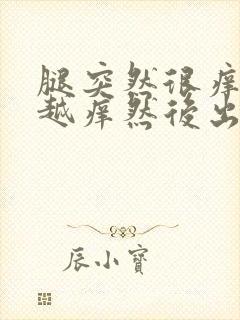 腿突然很痒
越痒然後出
辰小寶